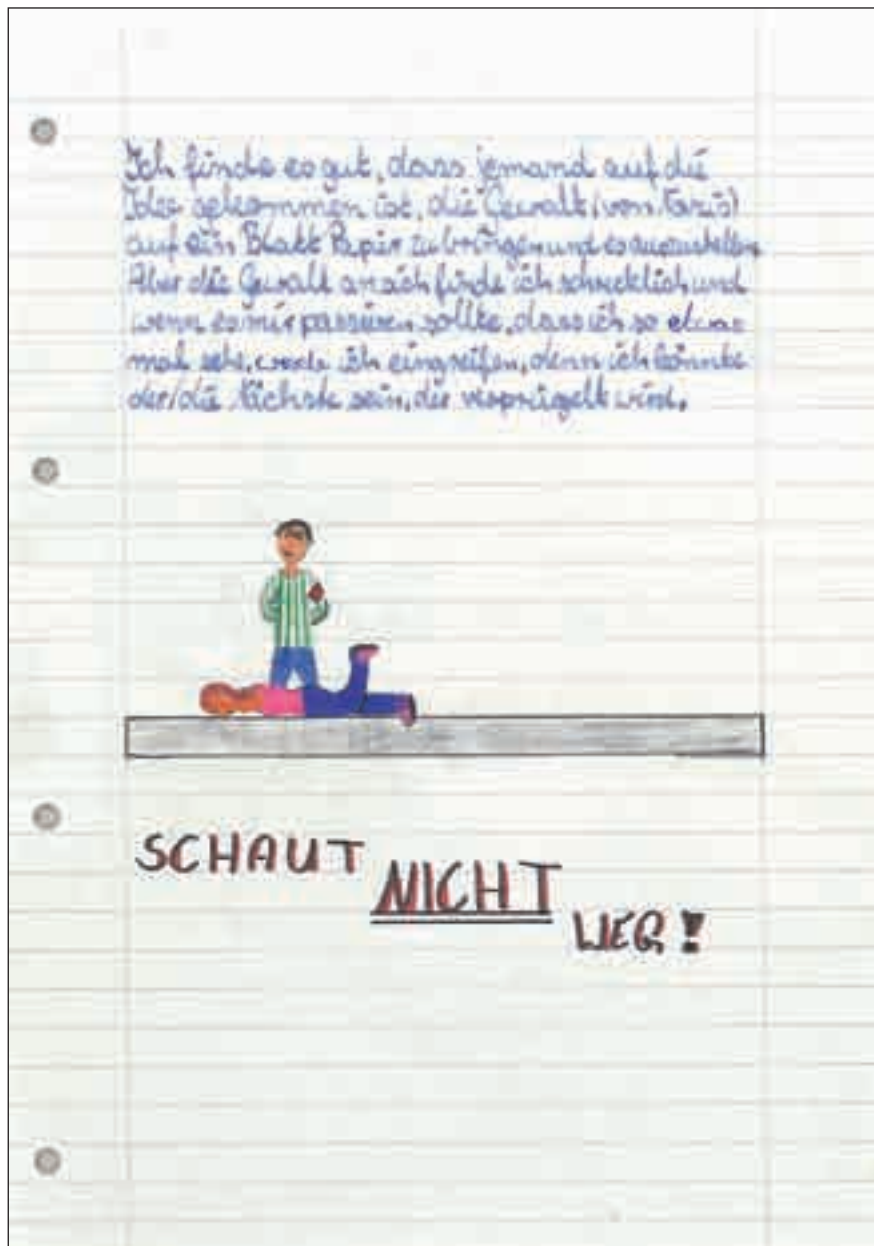 Ich finde es gut, dass jemand auf die
Idee gekommen ist, die Gewalt (von Nazis)
auf ein Blatt Papier zu bringen und es auszustellen.
Aber die Gewalt an sich finde ich schrecklich und
wenn es mir passieren sollte, dass ich so etwas
mal sehe, werde ich eingreifen, denn ich könnte
der/die Nächste sein, die verprügelt wird.
SCHAUT
NICHT
WEG!